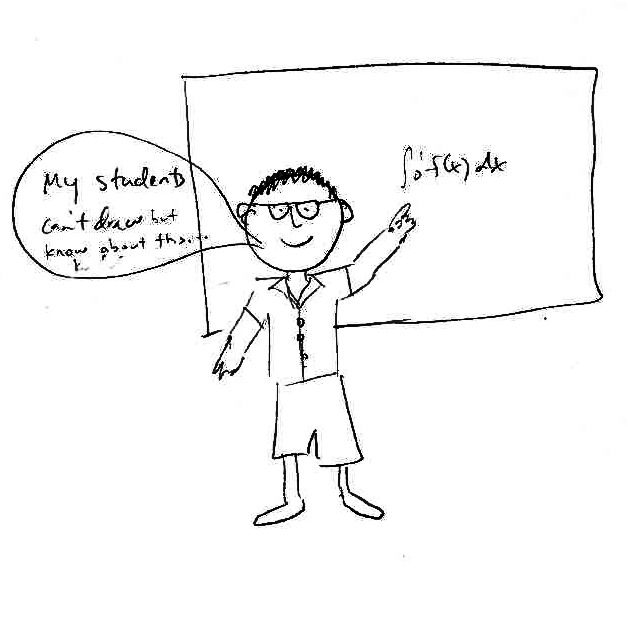 My students
can't draw but
know about this...
∫₀¹ f(x) dx